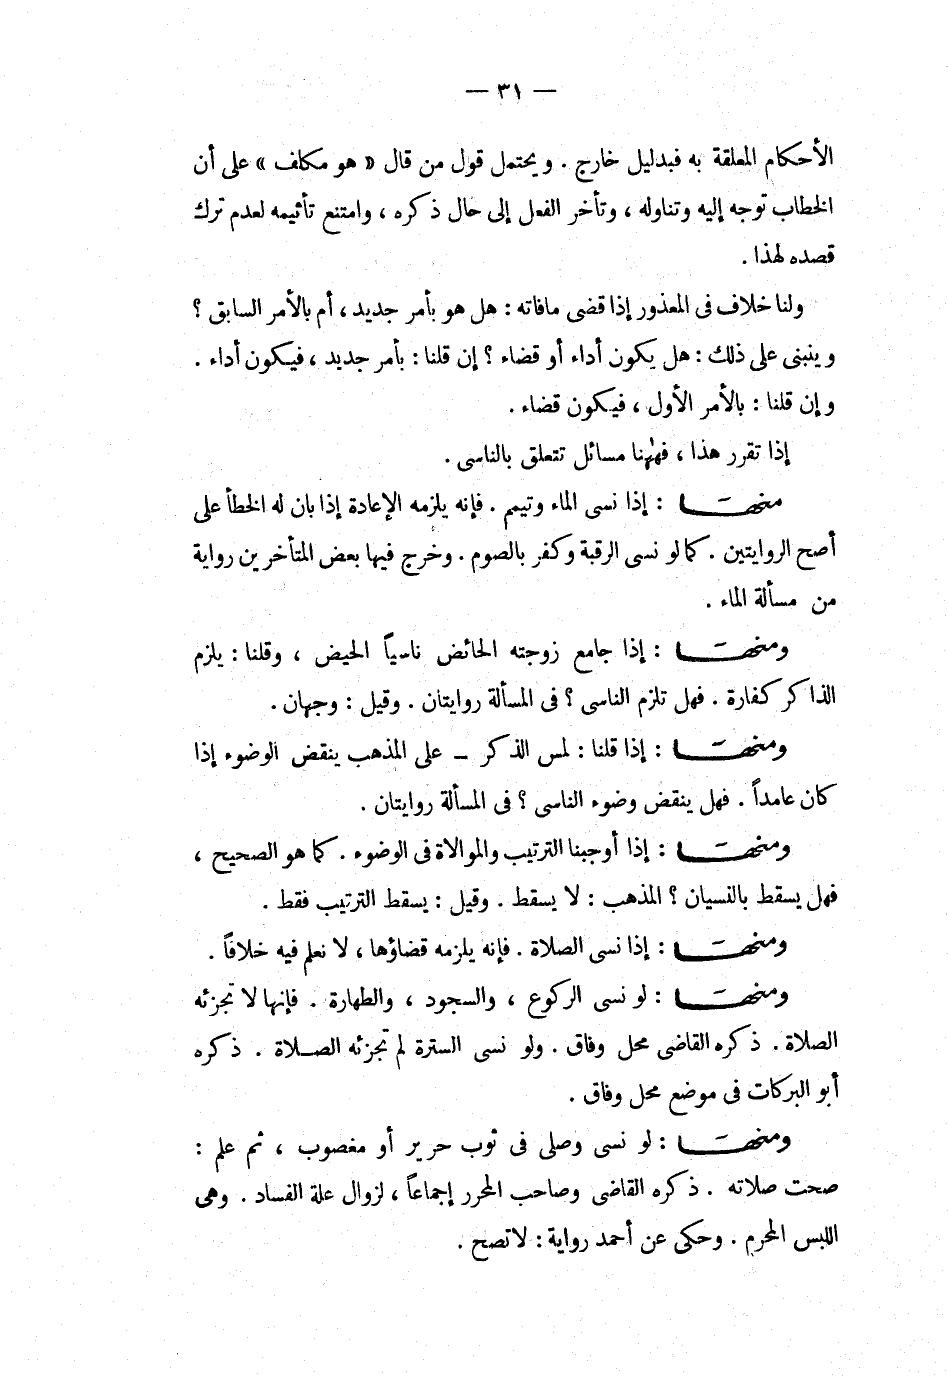 — ٣١ —
الأحكام المعلقة به فبدليل خارج . ويحتمل قول من قال « هو مكلف » على أن
الخطاب توجه إليه وتناوله ، وتأخر الفعل إلى حال ذكره ، وامتنع تأثيمه لعدم ترك
قصده لهذا .
ولنا خلاف فى المعذور إذا قضى مافاته : هل هو بأمر جديد ، أم بالأمر السابق ؟
وينبنى على ذلك : هل يكون أداء أو قضاء ؟ إن قلنا : بأمر جديد ، فيكون أداء .
وإن قلنا : بالأمر الأول ، فيكون قضاء .
إذا تقرر هذا ، فههنا مسائل تتعلق بالناسى .
منها : إذا نسى الماء وتيمم . فإنه يلزمه الإعادة إذا بان له الخطأ على
أصح الروايتين . كما لو نسى الرقبة وكفر بالصوم . وخرج فيها بعض المتأخرين رواية
من مسألة الماء .
ومنها : إذا جامع زوجته الحائض ناسياً الحيض ، وقلنا : يلزم
الذاكر كفارة . فهل تلزم الناسى ؟ فى المسألة روايتان . وقيل : وجهان .
ومنها : إذا قلنا : لمس الذكر – على المذهب ينقض الوضوء إذا
كان عامداً . فهل ينقض وضوء الناسى ؟ فى المسألة روايتان .
ومنها : إذا أوجبنا الترتيب والموالاة فى الوضوء . كما هو الصحيح ،
فهل يسقط بالنسيان ؟ المذهب : لا يسقط . وقيل : يسقط الترتيب فقط .
ومنها : إذا نسى الصلاة . فإنه يلزمه قضاؤها ، لا نعلم فيه خلافاً .
ومنها : لو نسى الركوع ، والسجود ، والطهارة . فإنها لا تجزئه
الصلاة . ذكره القاضى محل وفاق . ولو نسى السترة لم تجزئه الصلاة . ذكره
أبو البركات فى موضع محل وفاق .
ومنها : لو نسى وصلى فى ثوب حرير أو مغصوب ، ثم علم :
صحت صلاته . ذكره القاضى وصاحب المحرر إجماعاً ، لزوال علة الفساد . وهى
اللبس المحرم . وحكى عن أحمد رواية : لاتصح .